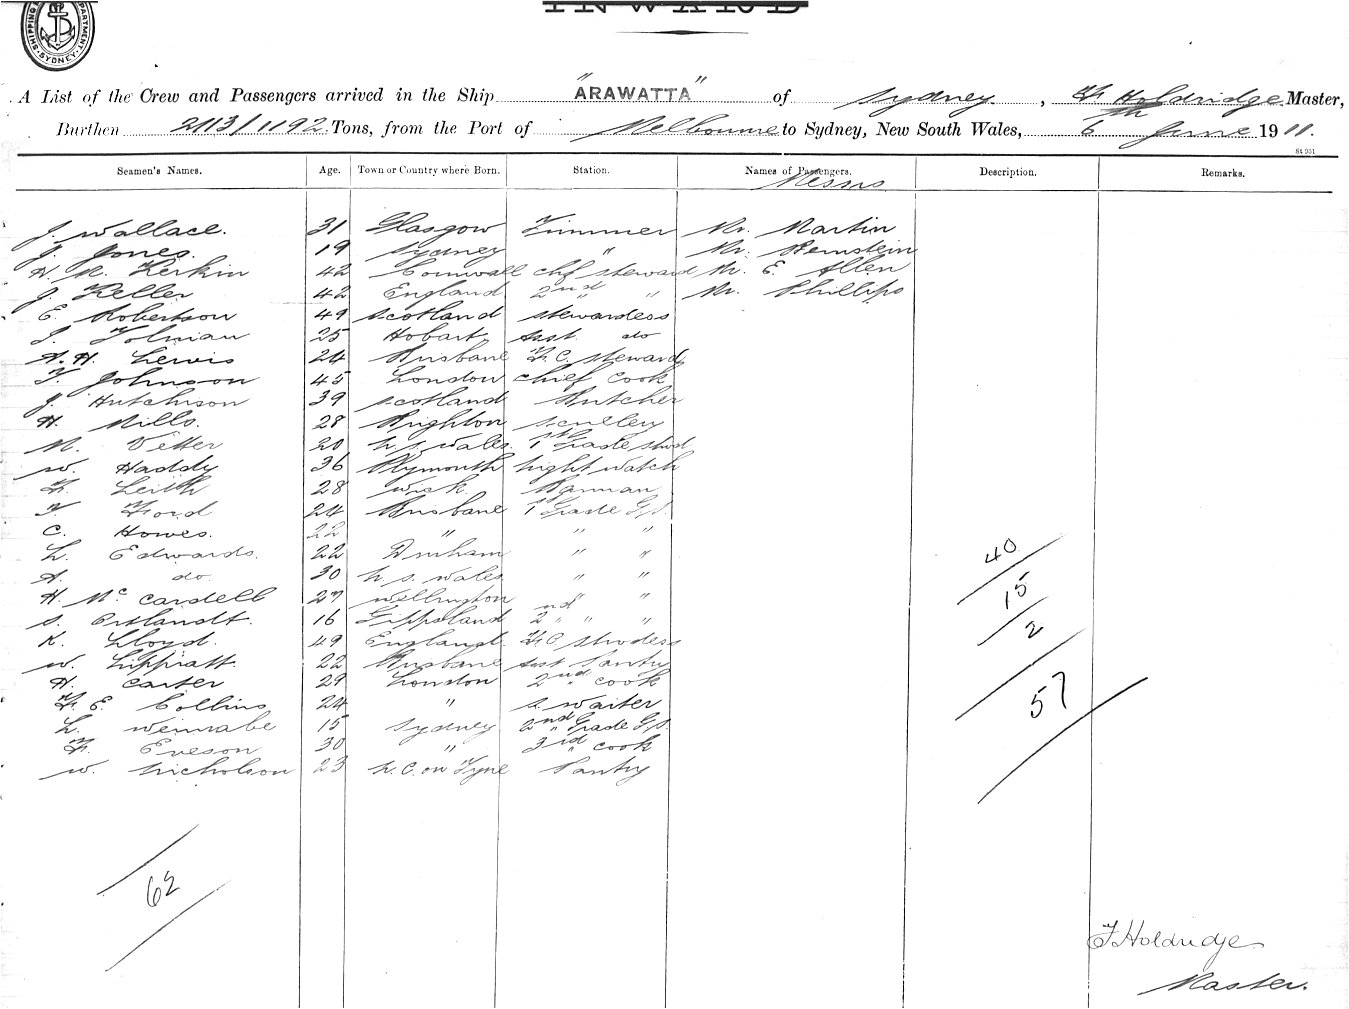 SHIPPING DEPARTMENT SYDNEY
INWARD
A List of the Crew and Passengers arrived in the Ship "ARAWATTA" of Sydney, F. Holdridge Master,
Burthen 2113/1192 Tons, from the Port of Melbourne to Sydney, New South Wales, 6th June 1911.
St 951
Seamen's Names. Age. Town or Country where Born. Station. Names of Passengers. Description. Remarks.
Messrs
J. Wallace. 31 Glasgow Trimmer Mr. Martin
J. Jones. 19 Sydney " Mr. Bernstein
42 Cornwall chf steward Mr. E. Allen
J. Keller 42 England 2nd " Mr. Phillips
E. Robertson 49 Scotland Stewardess
J. Tolman 25 Hobart Asst. do
A. H. Lewis 24 Brisbane F. C. Steward
T. Johnson 45 London Chief Cook
J. Hutchison 39 Scotland Butcher
H. Mills. 28 Brighton Scullery
M. Vetter 20 N. S. Wales. 1st Grade Stwd
W. Haddy 36 Plymouth Night Watch
F. Leith 28 Wick. Barman
F. Ford 24 Brisbane 1st Grade G.S.
C. Howes. 22 " " "
L. Edwards. 22 Durham " "
A. do 30 N. S. Wales " "
H. McCardell 27 Wellington " "
S. 16 Gippsland 2nd " " "
K. Lloyd. 49 England. F.C. Stwdess
W. Lippiatt. 22 Brisbane Asst Pantry
H. Carter 29 London 2nd " Cook
F. E. Collins 24 " S. Waiter
L. 15 Sydney 2nd " Grade G.S.
F. Eveson 30 " 3rd " Cook
W. Nicholson 23 N. C. on Tyne Pantry
40
15
2
57
62
F Holdridge
Master.